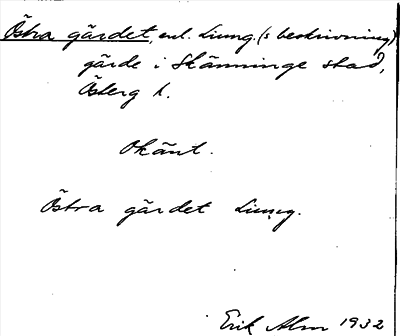 Östra gärdet, enl. Ljung. (s beskrivning)
gärde i Skänninge stad,
Österg l.
Okänt.
Östra gärdet Ljung.
Erik Alm 1932